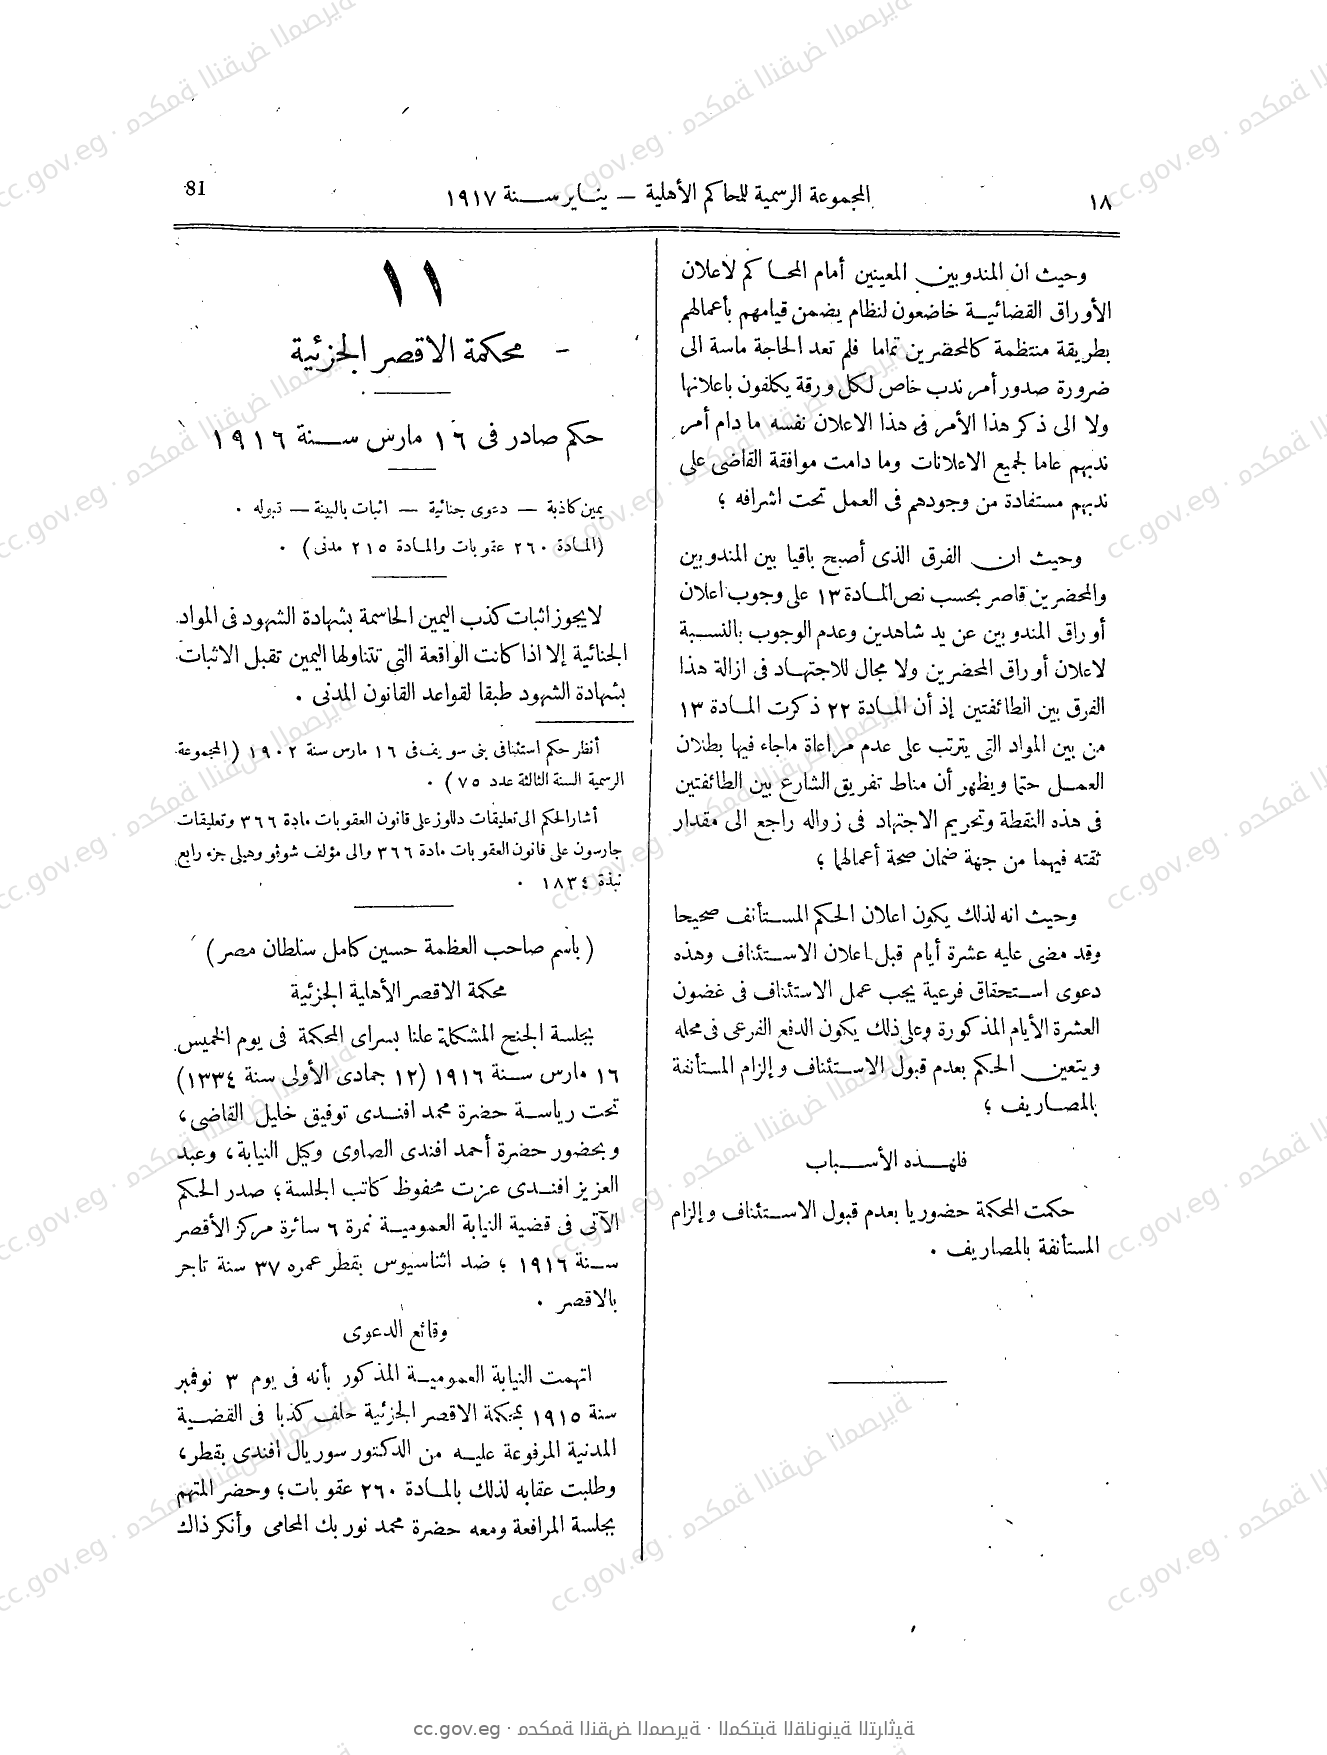 ١٨
المجموعة الرسمية للمحاكم الأهلية — ينـاير سـنة ١٩١٧
81
وحيث ان المندوبين المعينين أمام المحاكم لاعلان
الأوراق القضائيـة خاضعون لنظام يضمن قيامهم بأعمالهم
بطريقة منتظمة كالمحضرين تماما فلم تعد الحاجة ماسة الى
ضرورة صدور أمر ندب خاص لكل ورقة يكلفون باعلانها
ولا الى ذكر هذا الأمر فى هذا الاعلان نفسه ما دام أمر
ندبهم عاما لجميع الاعلانات وما دامت موافقة القاضى على
ندبهم مستفادة من وجودهم فى العمل تحت اشرافه ؛
وحيث ان الفرق الذى أصبح باقيا بين المندوبين
والمحضرين قاصر بحسب نص المادة ١٣ على وجوب اعلان
أوراق المندوبين عن يد شاهدين وعدم الوجوب بالنسبة
لاعلان أوراق المحضرين ولا مجال للاجتهـاد فى ازالة هذا
الفرق بين الطائفتين إذ أن المـادة ٢٢ ذكرت المـادة ١٣
من بين المواد التى يترتب على عدم مراعاة ماجاء فيها بطلان
العمـل حتما ويظهر أن مناط تفريق الشارع بين الطائفتين
فى هذه النقطة وتحريم الاجتهاد فى زواله راجع الى مقدار
ثقته فيهما من جهة ضمان صحة أعمالهما ؛
وحيث انه لذلك يكون اعلان الحكم المسـتأنف صحيحا
وقد مضى عليه عشرة أيام قبل اعلان الاسـتئناف وهذه
دعوى اسـتحقاق فرعية يجب عمل الاستئناف فى غضون
العشرة الأيام المذكورة وعلى ذلك يكون الدفع الفرعى فى محله
ويتعين الحكم بعدم قبول الاسـتئناف وإلزام المستأنفة
بالمصـاريف ؛
فلهـذه الأسـباب
حكمت المحكمة حضوريا بعدم قبول الاسـتئناف وإلزام
المستأنفة بالمصاريف .
١١
محكمة الاقصر الجزئية
حكم صادر فى ١٦ مارس سـنة ١٩١٦
يمين كاذبة — دعوى جنائية — اثبات بالبينة — قبوله .
(المـادة ٢٦٠ عقوبات والمـادة ٢١٥ مدنى) .
لا يجوز اثبات كذب اليمين الحاسمة بشهادة الشهود فى المواد
الجنائية إلا اذا كانت الواقعة التى تتناولها اليمين تقبل الاثبات
بشهادة الشهود طبقا لقواعد القانون المدنى .
أنظر حكم استئنافى بنى سويف فى ١٦ مارس سنة ١٩٠٢ (المجموعة
الرسمية السنة الثالثة عدد ٧٥) .
أشار الحكم الى تعليقات دالوز على قانون العقوبات مادة ٣٦٦ وتعليقات
جارسون على قانون العقوبات مادة ٣٦٦ والى مؤلف شوفو وهيلى جزء رابع
نبذة ١٨٣٤ .
(باسم صاحب العظمة حسين كامل سلطان مصر)
محكمة الاقصر الأهلية الجزئية
بجلسة الجنح المشكلة علنا بسراى المحكمة فى يوم الخميس
١٦ مارس سـنة ١٩١٦ (١٢ جمادى الأولى سنة ١٣٣٤)
تحت رياسـة حضرة محمد افنـدى توفيق خليل القاضى ،
وبحضور حضرة أحمد افندى الصاوى وكيل النيابة ، وعبد
العزيز افنـدى عزت محفوظ كاتب الجلسة ؛ صدر الحكم
الآتى فى قضية النيابة العموميـة نمرة ٦ سائرة مركز الأقصر
سـنة ١٩١٦ ؛ ضد اثناسيوس بقطر عمره ٣٧ سنة تاجر
بالاقصر .
وقائع الدعوى
اتهمت النيابة العموميـة المذكور بأنه فى يوم ٣ نوفمبر
سنة ١٩١٥ بمحكمة الاقصر الجزئية حلف كذبا فى القضـية
المدنية المرفوعة عليـه من الدكتور سوريال افندى بقطر ،
وطلبت عقابه لذلك بالمـادة ٢٦٠ عقوبات ؛ وحضر المتهم
بجلسة المرافعة ومعه حضرة محمد نور بك المحامى وأنكر ذلك
cc.gov.eg · محكمة النقض المصرية · المكتبة القانونية التراثية